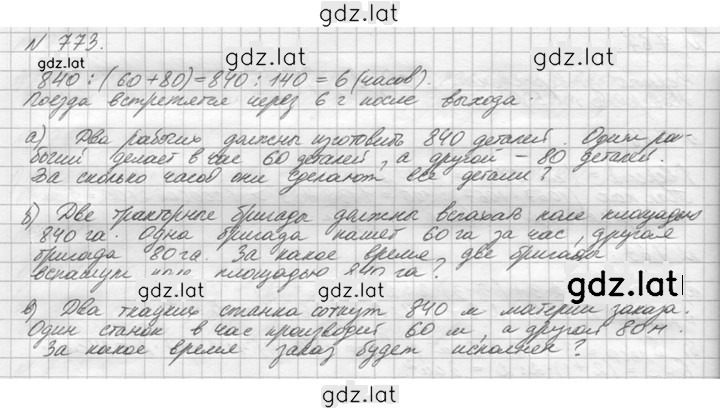 gdz.lat
N 773.
gdz.lat gdz.lat
840 : (60+80)=840 : 140 = 6 (часов).
Поезда встретятся через 6 ч после выхода.
gdz.lat gdz.lat
а) Два рабочих должны изготовить 840 деталей. Один ра-
бочий делает в час 60 деталей, а другой – 80 деталей.
За сколько часов они сделают все детали?
б) Две тракторные бригады должны вспахать поле площадью
840 га. Одна бригада пашет 60 га за час, другая
бригада 80 га. За какое время две бригады
вспашут поле площадью 840 га?
gdz.lat gdz.lat gdz.lat
в) Два ткацких станка соткут 840 м материи заказа.
Один станок в час производит 60 м, а другой 80 м.
За какое время заказ будет исполнен?
gdz.lat